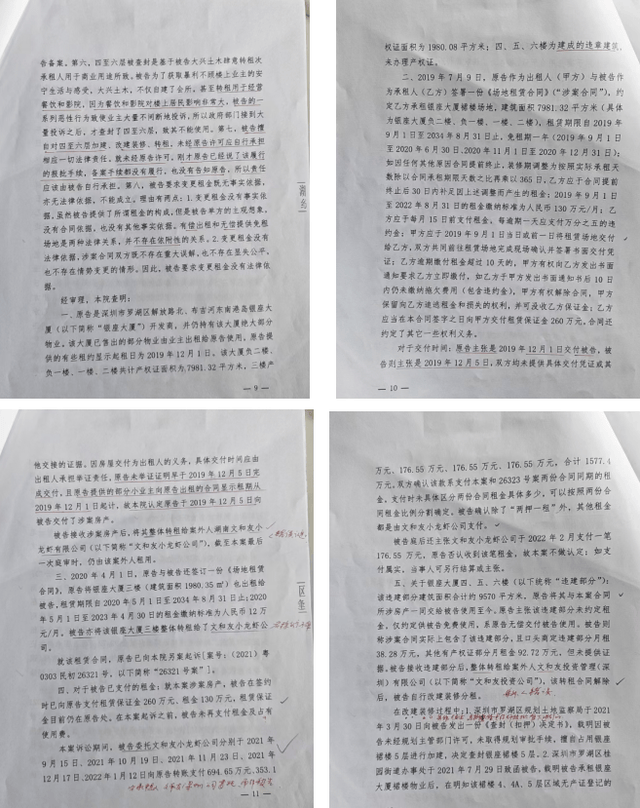 告备案。第六，四至六层被查封是基于被告大兴土木肆意转租次
承租人用于商业用途所致。被告为了获取暴利不顾楼上业主的安
宁生活与感受，大兴土木，不仅自建了会所，甚至转租用于经营
餐饮和影院，因为餐饮和影院对楼上居民影响非常大，被告的一
系列恶性行为致使业主大量不断地投诉，所以政府部门接到大
量投诉之后，才查封了四至六层，致其不能使用。第七，被告擅
自对四至六层加建、改建装修、转租，未经原告许可应自行承担
相应一切法律责任，就未经原告许可，刚才原告已经说了该履行
的报批手续，备案手续都没有履行，也没有告知原告，所以责任
应该由被告自行承担。第八，被告要求变更租金既无事实依据，
亦无法律依据，不能成立。理由有两点：1.变更租金没有事实依
据，虽然被告提供了所谓租金的构成，但是被告单方的主观想象，
没有合同依据，也没有其他事实依据。有偿出租和无偿提供免租
场地是两种法律关系，并不存在依附性的关系。2.变更租金没有
法律依据，涉案合同双方既不存在重大误解，也不存在显失公平，
也不存在情势变更的情形。因此，被告要求变更租金没有法律依
据。
经审理，本院查明：
一、原告是深圳市罗湖区解放路北、布吉河东南港岛银座大
厦（以下简称“银座大厦”）开发商，并仍持有该大厦绝大部分
物业。该大厦已售出的部分物业由业主出租给原告使用，原告提
供的有些租约显示起租日为2019年12月1日。该大厦负二楼、
负一楼、一楼、二楼共计产权证面积为7981.32平方米，三楼产
9
权证面积为1980.08平方米；四、五、六楼为建成的违章建筑，
未办理产权证。
二、2019年7月9日，原告作为出租人（甲方）与被告作
为承租人（乙方）签署一份《场地租赁合同》（“涉案合同”），约
定乙方承租银座大厦裙楼场地，建筑面积7981.32平方米（具体
为大厦负二楼、负一楼、一楼、二楼），租赁期限自2019年
9月1日至2034年8月31日止，免租期一年（2019年9月1日
至2020年6月30日、2020年11月1日至2020年12月31日）；
如因任何其他原因合同提前终止，装修期调整为按照实际承租天
数除以合同承租期限天数之比再乘以365，乙方应于合同提前
终止后30日内补足因上述调整而产生的租金；2019年9月1日
至2022年8月31日的租金缴纳标准为人民币130万元/月；乙
方应于每月15日前支付租金，每逾期一天应支付万分之五的违
约金；甲方应于2019年9月1日当日或前一日将租赁场地交付
给乙方，双方共同前往租赁场地完成现场确认并签署书面交付凭
证；乙方逾期缴付租金超过10天的，甲方有权向乙方发出书面
通知要求乙方立即缴付，如乙方于甲方发出书面通知书后10日
内仍未缴纳拖欠费用（包含违约金），甲方有权解除合同，甲方
保留向乙方追送租金和损失的权利，并可没收乙方保证金；乙方
应当在本合同签字之日向甲方交付租赁保证金260万元，合同还
约定了其它一些权利义务。
对于交付时间：原告主张是2019年12月1日交付被告，被
告则主张是2019年12月5日，双方均未提供具体交付凭证或其
10
他交接的证据，因房屋交付为出租人的义务，具体交付时间应由
出租人承担举证责任，原告未举证证明早于2019年12月5日完
成交付，且原告提供的部分小业主向原告出租的合同显示租期从
2019年12月1日起计，故本院认定原告于2019年12月5日向
被告交付了涉案房产。
被告接收涉案房产后，将其整体转租给案外人湖南文和友小
龙虾有限公司（以下简称“文和友小龙虾公司”），截至本案最后
一次庭审时，仍由该案外人租用。
三、2020年4月1日，原告与被告还签订一份《场地租赁
合同》，原告将银座大厦三楼（建筑面积1980.35㎡）也出租给
被告，租赁期限自2020年5月1日至2034年8月31日止；2020
年5月1日至2023年4月30日的租金缴纳标准为人民币12万
元/月。被告亦将该银座大厦三楼整体转租给了文和友小龙虾公
司。
就该租赁合同，原告已向本院另案起诉[案号：（2021）粤
0303民初26321号，以下简称“26321号案”]。
四、对于被告已支付的租金：就本案涉案房产，被告在签约
时已向原告支付租赁保证金260万元、租金130万元，租赁保证
金目前仍在原告处。在本案起诉之前，被告未再支付租金及占有
使用费。
本案诉讼期间，被告委托文和友小龙虾公司分别于2021年
9月15日、2021年10月19日、2021年11月23日、2021年
12月17日、2022年1月12日向原告转账支付694.65万元、353.1
11
万元、176.55万元、176.55万元、176.55万元，合计1577.4
万元，双方确认该款系支付本案和26323号案两份合同同期的租
金，支付时未具体区分两份合同租金具体多少，可以按照两份合
同租金比例分割确定。被告确认除了“两押一租”外，其他租金
都是由文和友小龙虾公司支付。
被告庭后还主张文和友小龙虾公司于2022年2月支付一笔
176.55万元，原告否认收到该笔租金，故本案不做认定；如支
付属实，当事人可另行结算或主张。
五、关于银座大厦四、五、六楼（以下统称“违建部分”）：
该违建部分建筑面积合计约9570平方米，原告将其与本案合同
所涉房产一同交给被告使用至今。原告主张该违建部分未约定租
金，仅约定提供被告免费使用，系原告无偿交付被告使用。被告则
称涉案合同实际上包含了该违建部分，且口头商定违建部分月租
38.28万元，其他有产权证部分月租金92.72万元，但未提供证
据。被告接收违建部分后，整体转租给案外人文和友投资管理（深
圳）有限公司（以下简称“文和友投资公司”），该转租合同解除
后，被告自行改建装修分租。
在改建装修过程中：1.深圳市罗湖区规划土地监察局于2021
年3月30日向被告发出一份《查封（扣押）决定书》，载明因被
告未经规划主管部门许可，未取得规划审批手续，擅自占用银座
裙楼5层进行加建，决定查封银座裙楼5层。2.深圳市罗湖区桂
园街道办事处于2021年7月29日致函被告，载明被告承租银座
大厦裙楼物业后，在明知该裙楼4、4A、5层区域无产证登记的